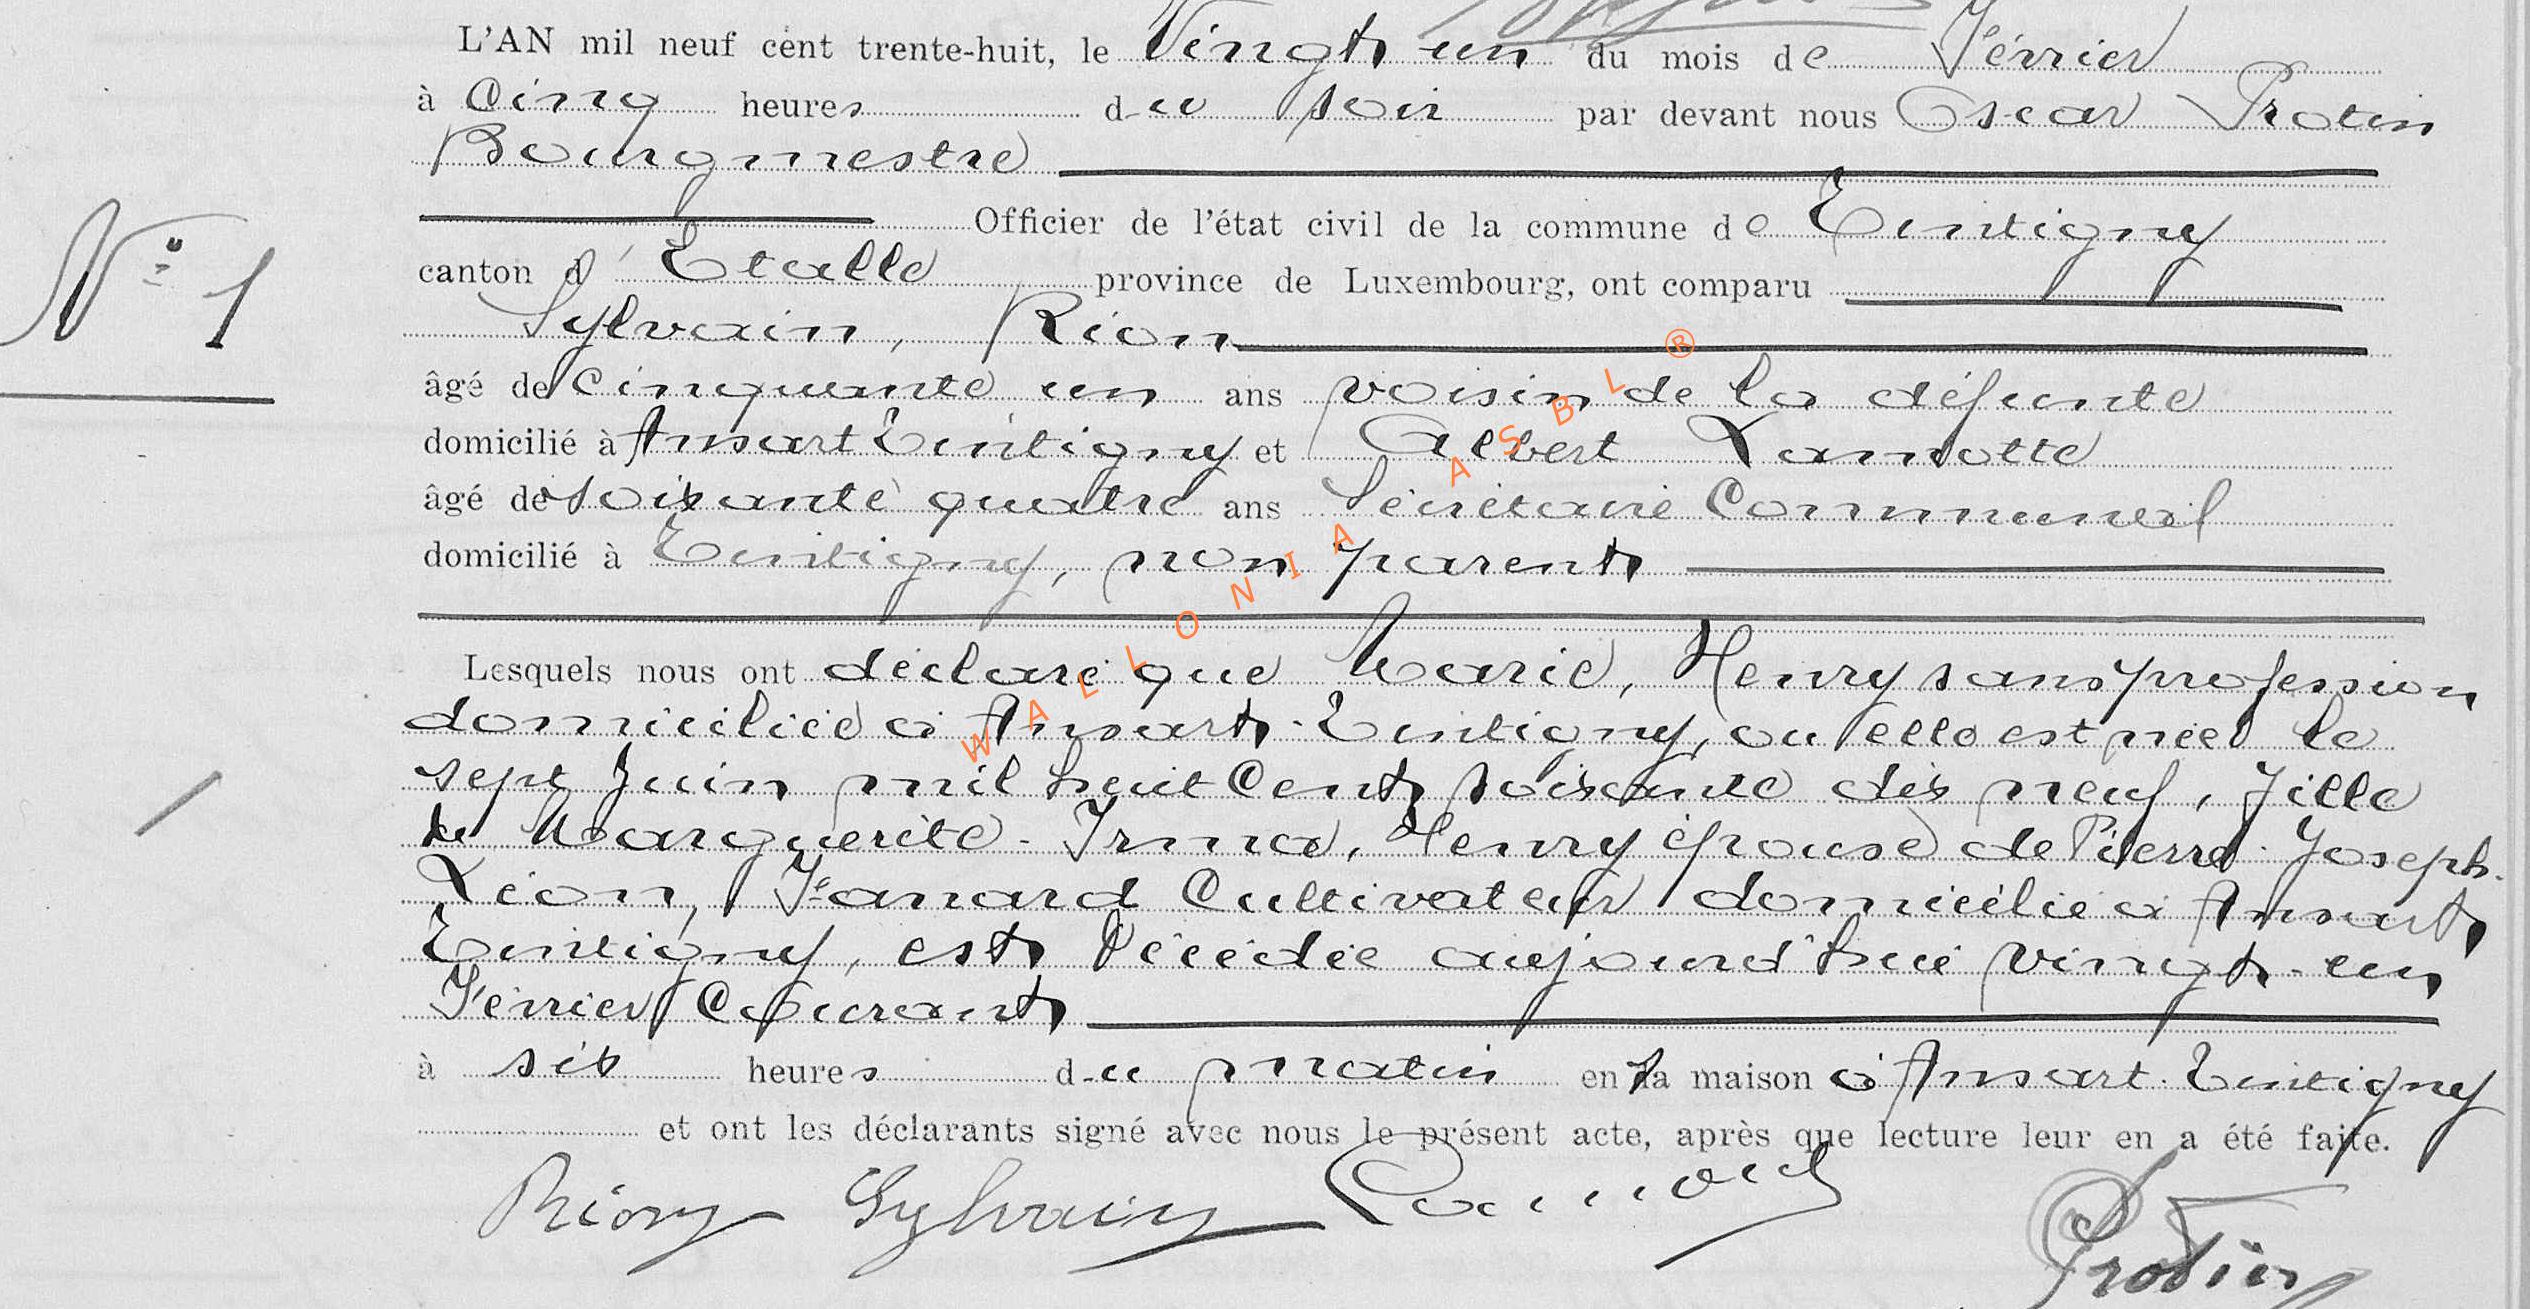 L'AN mil neuf cent trente-huit, le Vingt un du mois de Février
à Cinq heures du soir par devant nous Oscar Protin
Bourgmestre
Officier de l'état civil de la commune de Tintigny
N° 1
canton d' Etalle province de Luxembourg, ont comparu
Sylvain, Rion
âgé de cinquante un ans voisin de la défunte
domicilié à Ansart Tintigny et Albert Lamotte
âgé de soixante quatre ans Sécrétaire Communal
domicilié à Tintigny, non parent
Lesquels nous ont déclaré que Marie, Henry sans profession
domiciliée à Ansart-Tintigny, ou elle est née le
sept Juin mil huit Cent soixante dix neuf, Fille
de Marguerite-Irma, Henry épouse de Pierre-Joseph-
Léon, Fanard Cultivateur domicilié à Ansart
Tintigny, est Décédée aujourd'hui vingt-un
Février Courant
à six heures du matin en sa maison à Ansart-Tintigny
et ont les déclarants signé avec nous le présent acte, après que lecture leur en a été faite.
Rion Sylvain Lamotte Protin
WALLONIA ASBL ®